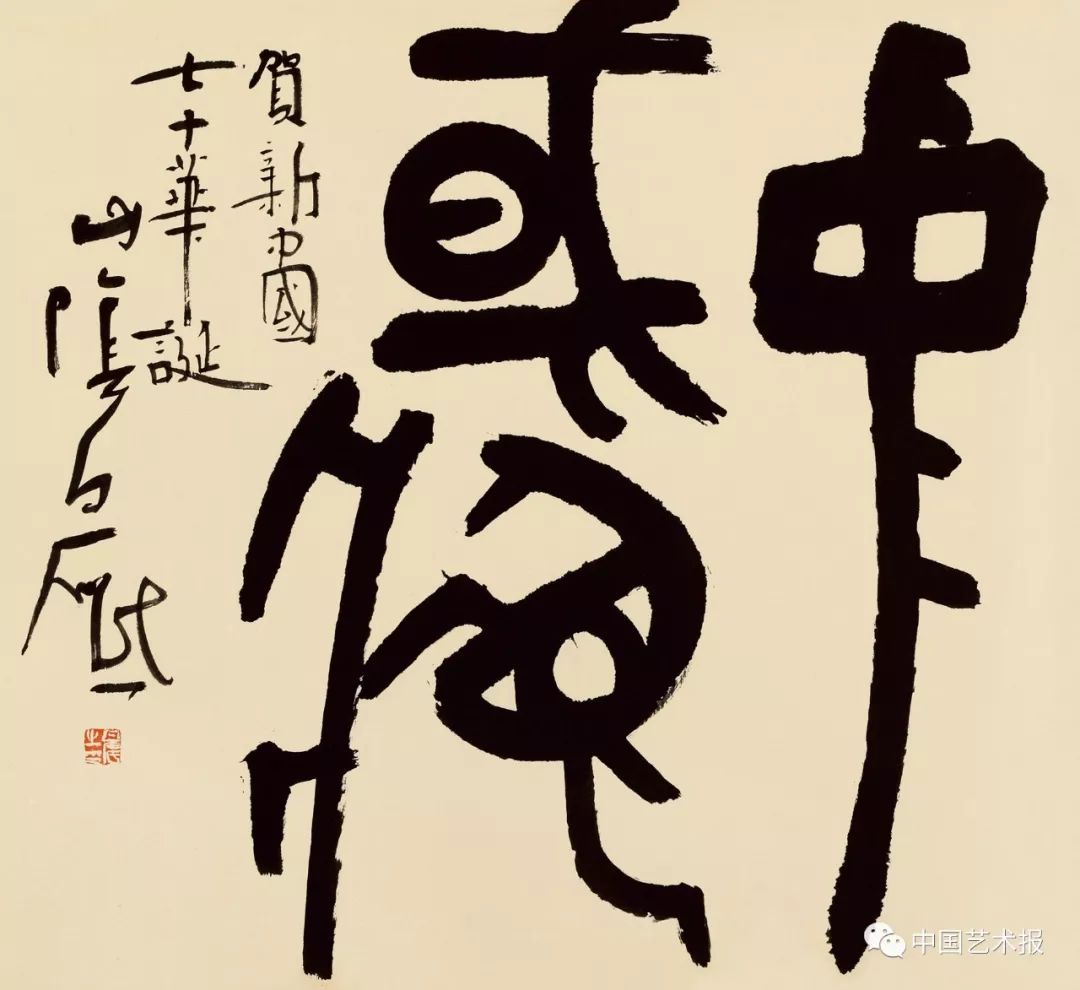 中
國夢
賀新中國
七十華誕
山陰白砥
中国艺术报